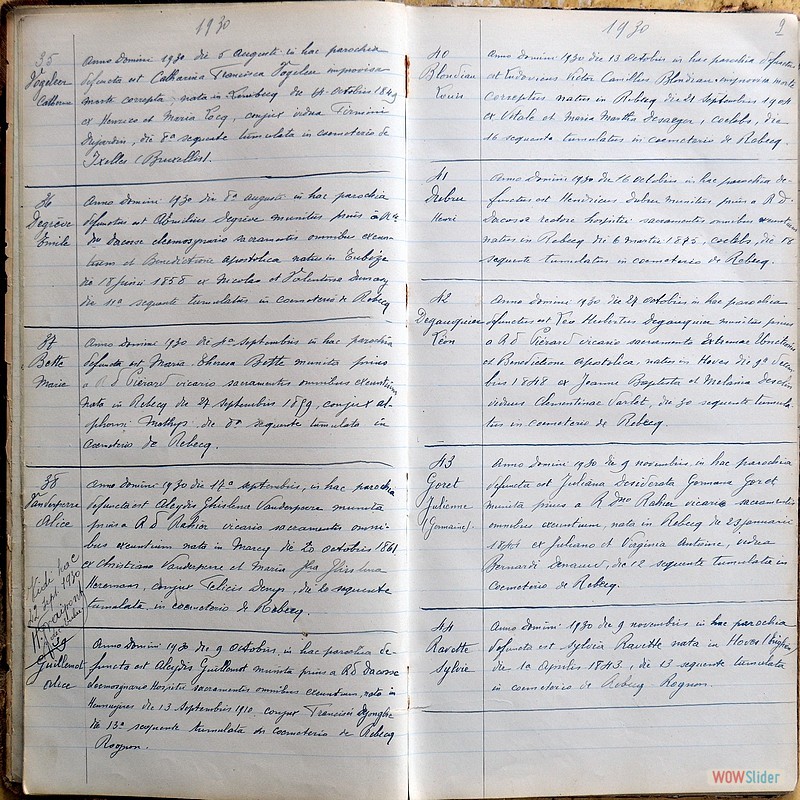 1930
35
Vogeleer
Catherine
Anno Domini 1930 die 5 Augusti in hac parochia
defuncta est Catharina Francisca Vogeleer improvisa
morte correpta, nata in die 4 Octobris 1849
ex Henrico et Maria Cocq, conjux vidua Firmini
Dujardin, die 8a sequente tumulata in coemeterio de
Ixelles (Bruxelles).
36
Degrève
Emile
Anno Domini 1930 die 8a augusti in hac parochia
defunctus est Aemilius Degrève munitus prius a Rdo
Dno Dacosse eleemosynario sacramentis omnibus exeun-
tium et Benedictione apostolica natus in Tubize
die 18 junii 1858 ex Nicolao et Valentina
die 11a sequente tumulatus in coemeterio de Rebecq
37
Bette
Maria
Anno Domini 1930 die 4a septembris in hac parochia
defuncta est Maria Theresa Bette munita prius
a R d Piérard vicario sacramentis omnibus exeuntium
nata in Rebecq die 27 septembris 1859, conjux al-
phonsi Mathys, die 8a sequente tumulata in
coemeterio de Rebecq.
38
Vanderperre
Alice
Anno Domini 1930 die 17a septembris, in hac parochia
defuncta est Aleydis Ghislena Vanderperre munita
prius a R d Rahier vicario sacramentis omni-
bus exeuntium nata in Marcq die 20 octobris 1861
ex Christiano Vanderperre et Maria Ghislena
Heremans, conjux Felicis Denys, die 20 sequente
tumulata in coemeterio de Rebecq.
Vidi hac
22 Sept 1930
39
Guillemot
Alice
Anno Domini 1930 die 9 Octobris, in hac parochia de-
functa est Aleydis Guillemot munita prius a Rd Dacosse
eleemosynario Hospitii sacramentis omnibus exeuntium, nata in
Hennuyères die 13 Septembris 1910, conjux Francisci
die 13a sequente tumulata in coemeterio de Rebecq
Rognon.
1930
9
40
Blondiau
Louis
Anno Domini 1930 die 13 octobris in hac parochia defunctus
est Ludovicus Victor Camillus Blondiau improvisa morte
correptus natus in Rebecq die 21 septembris 1904
ex Vitale et Maria Martha Desaeger, coelebs, die
16 sequente tumulatus in coemeterio de Rebecq.
41
Dubru
Henri
Anno Domini 1930 die 16 octobris in hac parochia de-
functus est Henricus Dubru munitus prius a R D
Dacosse rectore hospitii sacramentis omnibus exeuntium
natus in Rebecq die 6 martii 1895, coelebs, die 18
sequente tumulatus in coemeterio de Rebecq.
42
Degauquier
Léon
Anno Domini 1930 die 27 octobris in hac parochia
defunctus est Leo Hubertus Degauquier munitus prius
a R d Piérard vicario sacramento Extremae Unctionis
et Benedictione Apostolica natus in Hoves die 9a decem-
bris 1848 ex Joanne Baptista et Melania
viduus Clementinae Varlet, die 30 sequente tumula-
tus in coemeterio de Rebecq.
43
Goret
Julienne
(Germaine)
Anno Domini 1930 die 9 novembris in hac parochia
defuncta est Juliana Desiderata Germana Goret
munita prius a R Dno Rahier vicario sacramentis
omnibus exeuntium, nata in Rebecq die 23 januarii
ex Juliano et Virginia Antoine, vidua
Bernardi die 12 sequente tumulata in
coemeterio de Rebecq.
44
Ravette
Sylvie
Anno Domini 1930 die 9 novembris in hac parochia
defuncta est Sylvia Ravette nata in Hoves
die 10 Aprilis 1843, die 13 sequente tumulata
in coemeterio de Rebecq Rognon.
WOWSlider